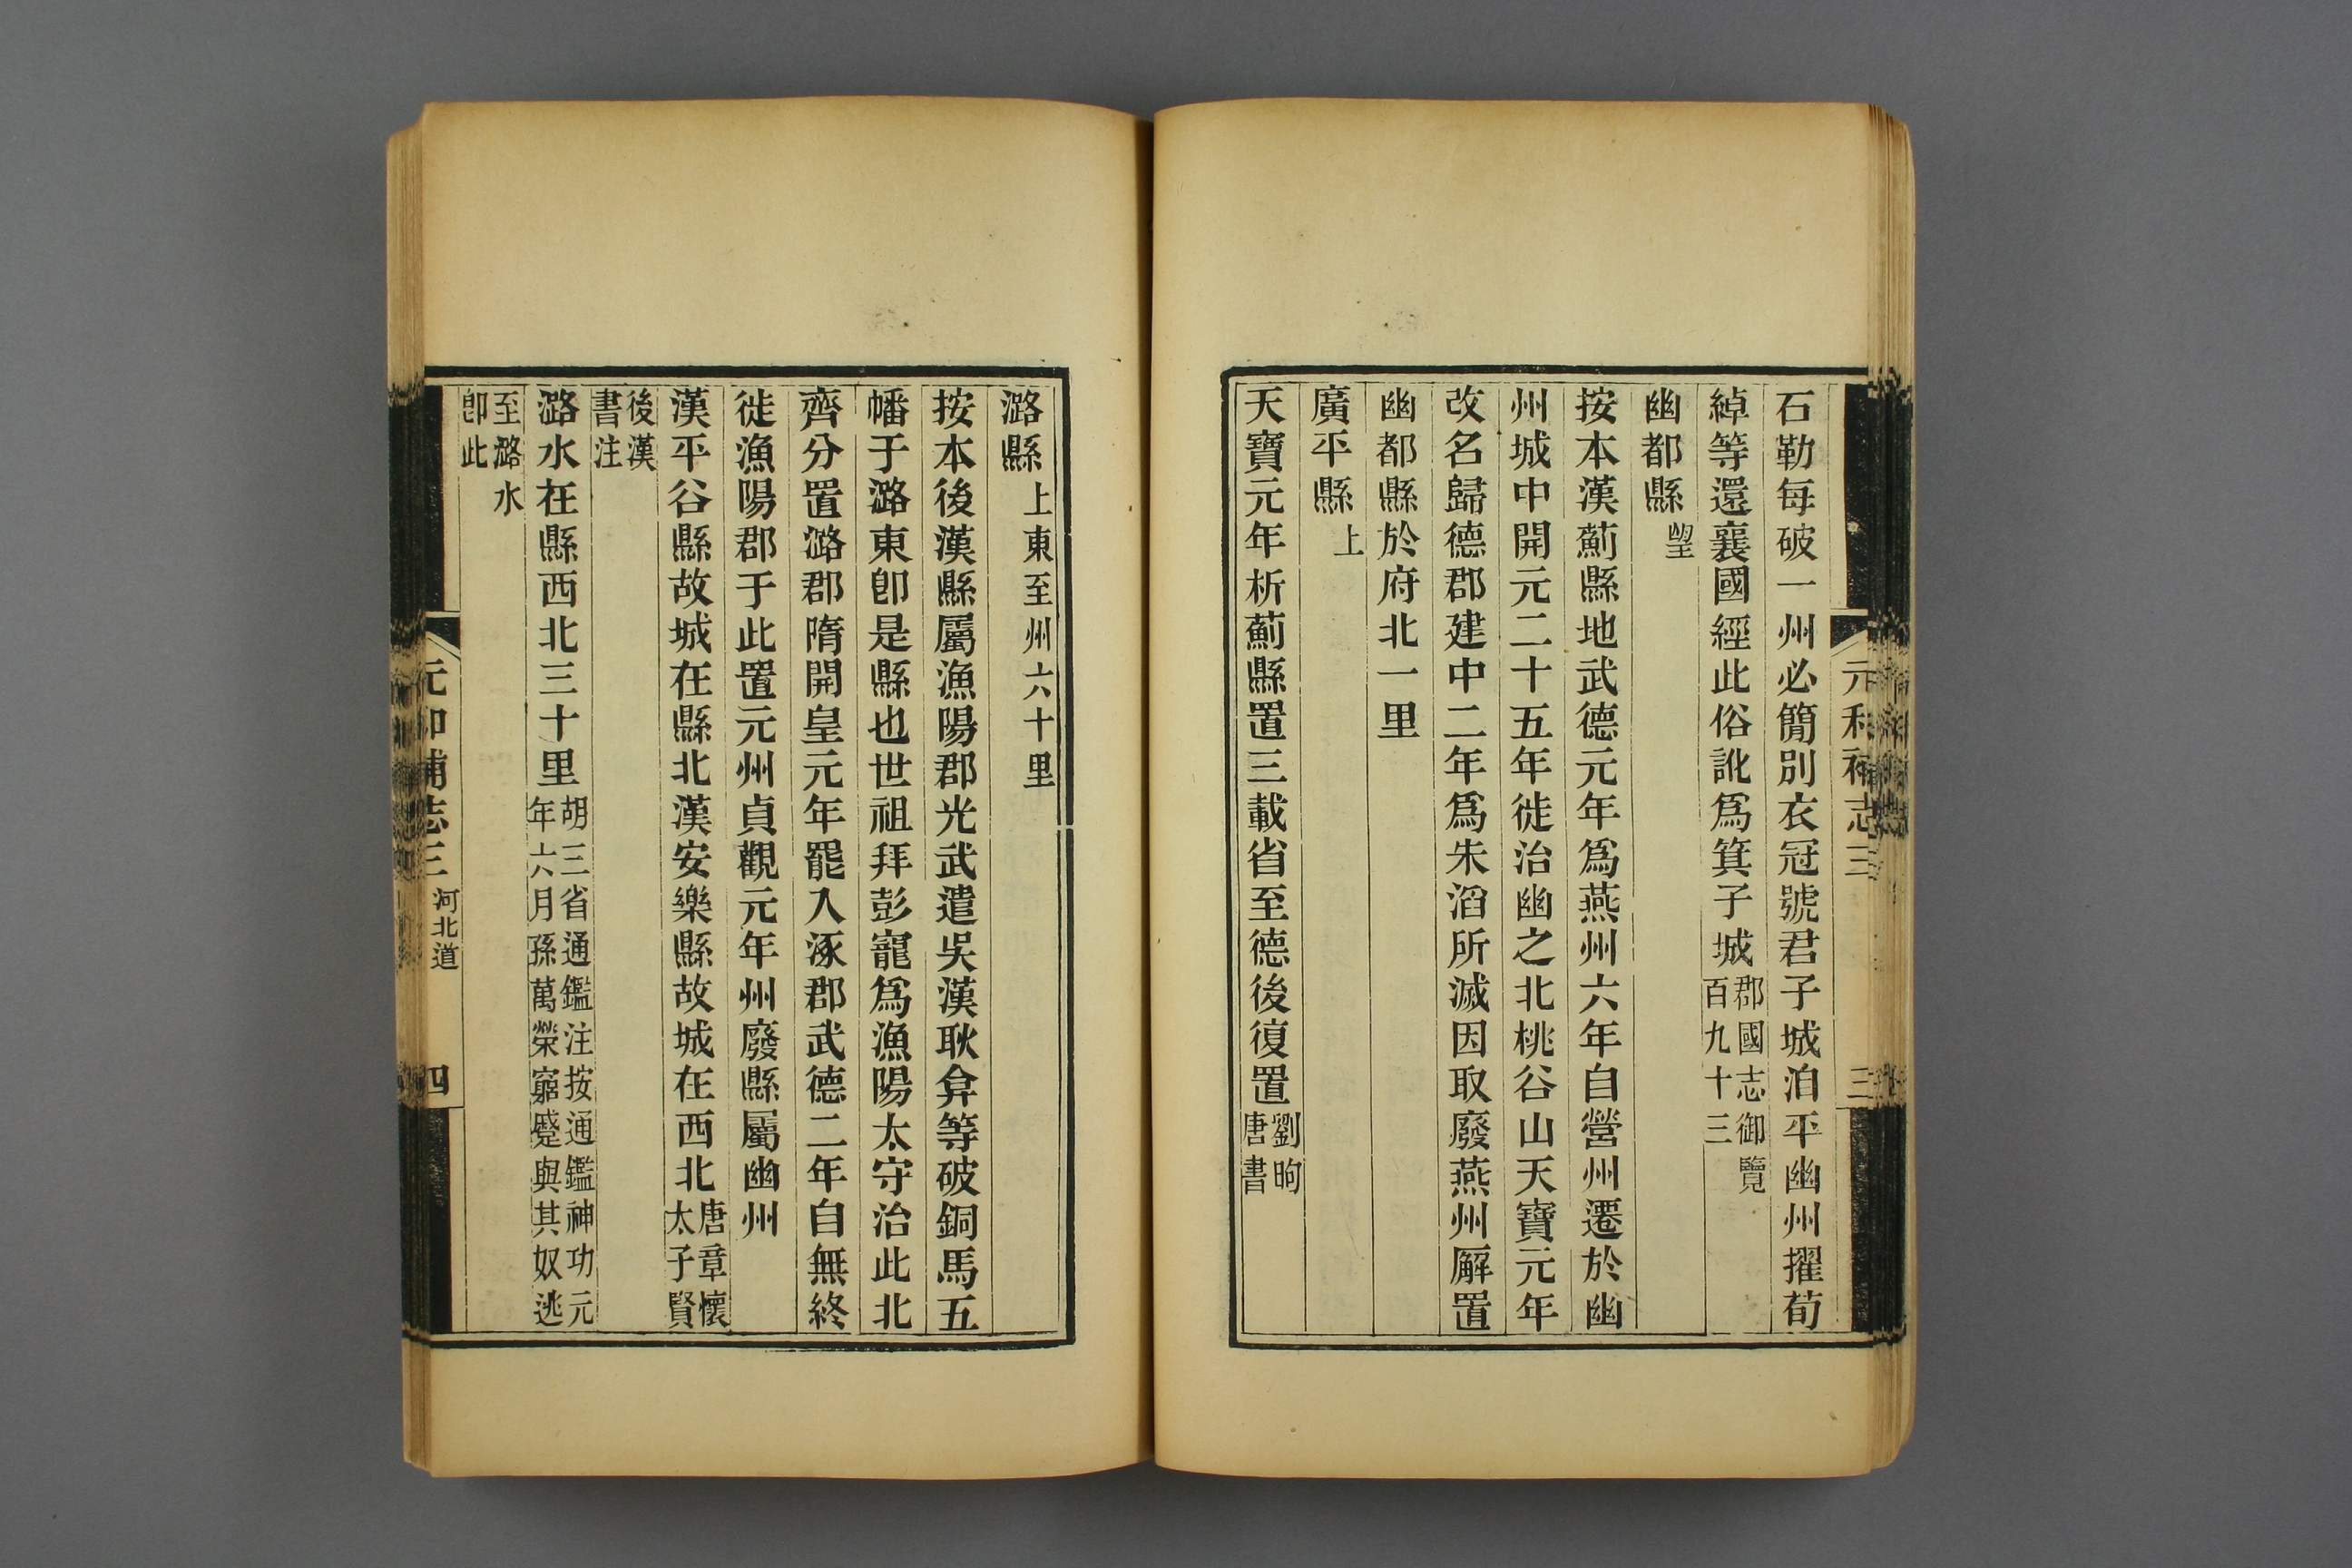 元和補志三
三
石勒每破一州必簡別衣冠號君子城洎平幽州擢荀
綽等還襄國經此俗訛爲箕子城郡國志御覽百九十三
幽都縣望
按本漢薊縣地武德元年爲燕州六年自營州遷於幽
州城中開元二十五年徙治幽之北桃谷山天寶元年
改名歸德郡建中二年爲朱滔所滅因取廢燕州廨置
幽都縣於府北一里
廣平縣上
天寶元年析薊縣置三載省至德後復置劉昫唐書
潞縣上東至州六十里
按本後漢縣屬漁陽郡光武遣吳漢耿弇等破銅馬五
幡于潞東卽是縣也世祖拜彭寵爲漁陽太守治此北
齊分置潞郡隋開皇元年罷入涿郡武德二年自無終
徙漁陽郡于此置元州貞觀元年州廢縣屬幽州
漢平谷縣故城在縣北漢安樂縣故城在西北唐章懷太子賢
後漢書注
潞水在縣西北三十里胡三省通鑑注按通鑑神功元年六月孫萬榮窮蹙與其奴逃
至潞水卽此
元和補志三
河北道
四